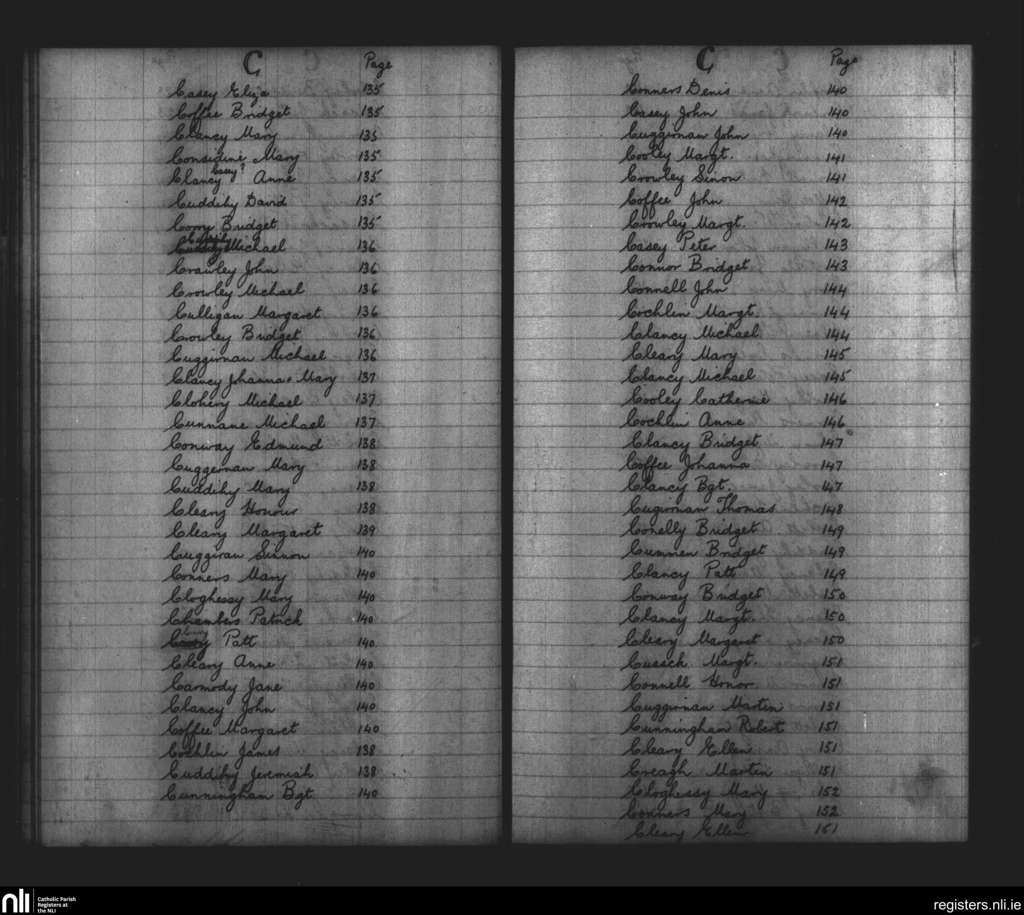 C Page
Casey Eliza 135
Coffee Bridget 135
Clancy Mary 135
Considine Mary 135
Casey?
Clancy Anne 135
Cuddihy David 135
Corry Bridget 135
Michael 136
Crawley John 136
Crowley Michael 136
Culligan Margaret 136
Crowley Bridget 136
Cuggirnan Michael 136
Clancy Johanna & Mary 137
Clohery Michael 137
Cunnane Michael 137
Conway Edmund 138
Cuggernan Mary 138
Cuddihy Mary 138
Cleary Honour 138
Cleary Margaret 139
Cuggiran Sinnon 140
Conners Mary 140
Cloghessy Mary 140
Chambers Patrick 140
Patt 140
Cleary Anne 140
Carmody Jane 140
Clancy John 140
Coffee Margaret 140
Cochlin James 138
Cuddihy Jeremiah 138
Cunninghan Bgt. 140
C Page
Conners Denis 140
Casey John 140
Cuggirnan John 140
Cooley Margt. 141
Crowley Sinon 141
Coffee John 142
Crowley Margt. 142
Casey Peter 143
Connor Bridget 143
Connell John 144
Cochlin Margt. 144
Clancy Michael 144
Cleary Mary 145
Clancy Michael 145
Cooley Catherine 146
Cochlin Anne 146
Clancy Bridget 147
Coffee Johanna 147
Clancy Bgt. 147
Cugirnan Thomas 148
Conelly Bridget 149
Cummen Bridget 149
Clancy Patt 149
Conway Bridget 150
Clancy Margt. 150
Cleary Margaret 150
Cussck Margt. 151
Connell Honor 151
Cuggirnan Martin 151
Cunninghan Robert 151
Cleary Ellen 151
Creagh Martin 151
Cloghessy Mary 152
Conners Mary 152
Cleary Ellen 151
nli Catholic Parish
Registers at
the NLI
registers.nli.ie